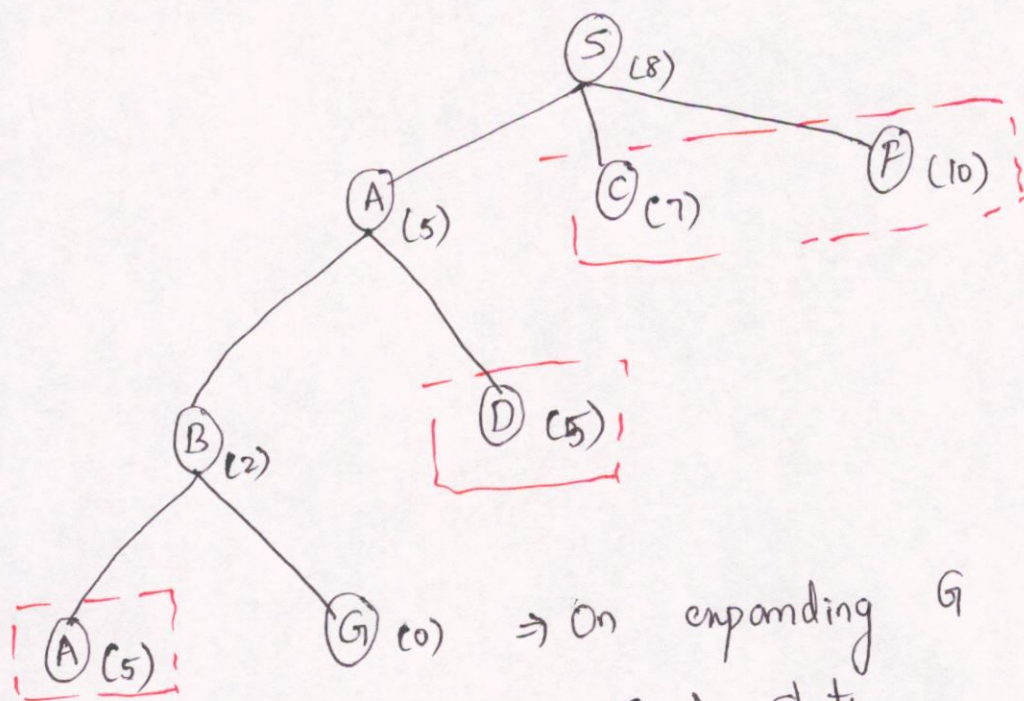 S (8)
A (5)
C (7)
F (10)
B (2)
D (5)
A (5)
G (0) ⇒ On expanding G